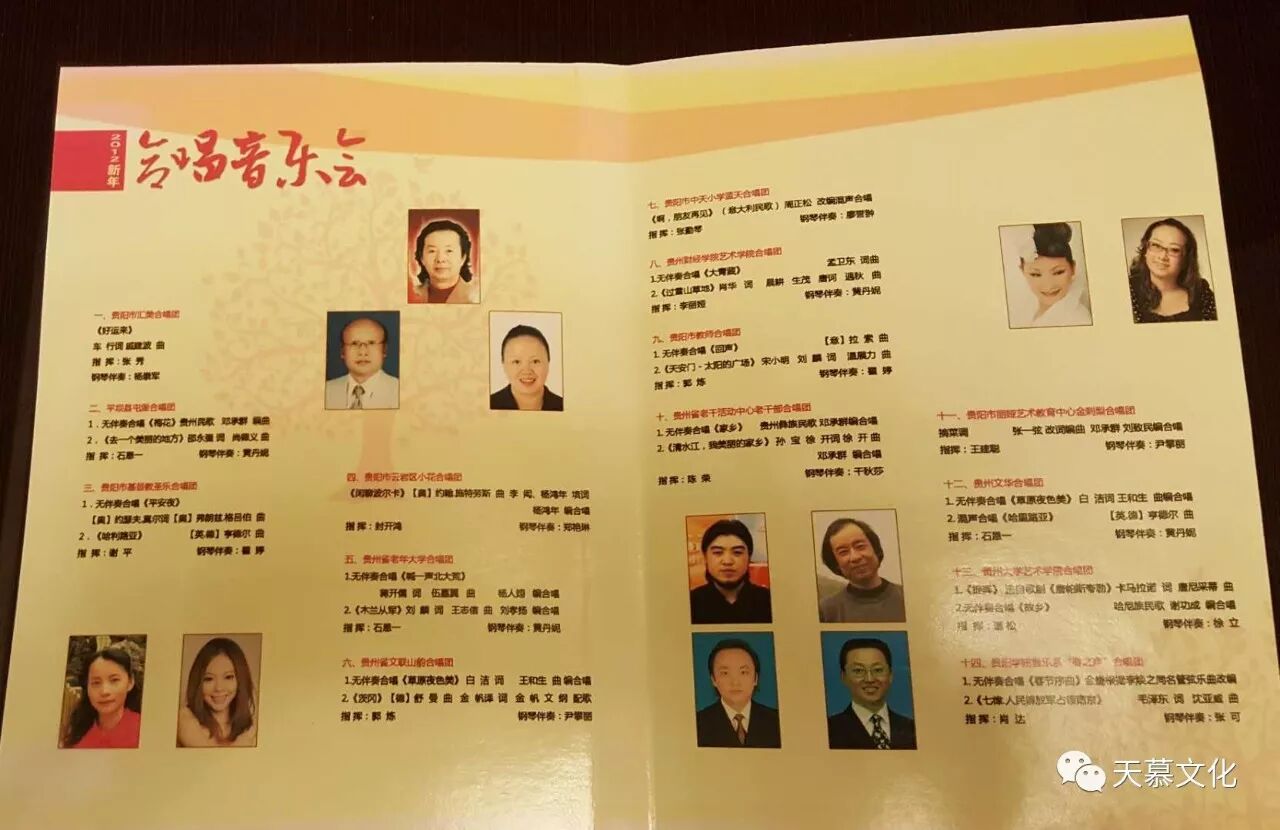 2012新年
合唱音乐会
一、贵阳市汇美合唱团
《好运来》
车 行词 戚建波 曲
指 挥：张 秀
钢琴伴奏：杨康军
二、平坝县屯堡合唱团
1．无伴奏合唱《梅花》贵州民歌 邓承群 编曲
2．《去一个美丽的地方》邵永强 词 肖德义 曲
指 挥：石恩一 钢琴伴奏：黄丹妮
三、贵阳市基督教圣乐合唱团
1．无伴奏合唱《平安夜》
【奥】约瑟夫.莫尔词【奥】弗朗兹.格吕伯 曲
2．《哈利路亚》 【英.德】亨德尔 曲
指 挥：谢 平 钢琴伴奏：翟 婷
四、贵阳市云岩区小花合唱团
《闲聊波尔卡》【奥】约翰.施特劳斯 曲 李 闳、杨鸿年 填词
杨鸿年 编合唱
指 挥：封开鸿 钢琴伴奏：郑艳琳
五、贵州省老年大学合唱团
1.无伴奏合唱《喊一声北大荒》
蒋开儒 词 伍嘉冀 曲 杨人翊 编合唱
2.《木兰从军》刘 麟 词 王志信 曲 刘孝扬 编合唱
指 挥：石恩一 钢琴伴奏：黄丹妮
六、贵州省文联山韵合唱团
1.无伴奏合唱《草原夜色美》白 洁 词 王和生 曲编合唱
2.《茨冈》【德】舒 曼 曲 金 帆译 词 金 帆 文 纲 配歌
指 挥：郭 炼 钢琴伴奏：尹攀丽
七、贵阳市中天小学蓝天合唱团
《啊，朋友再见》（意大利民歌）周正松 改编混声合唱
指 挥：张勤琴 钢琴伴奏：廖誉翀
八、贵州财经学院艺术学院合唱团
1.无伴奏合唱《大青藏》 孟卫东 词曲
2.《过雪山草地》肖华 词 晨耕 生茂 唐诃 遇秋 曲
指 挥：李丽娅 钢琴伴奏：黄丹妮
九、贵阳市教师合唱团
1.无伴奏合唱《回声》 【意】拉 索 曲
2.《天安门－太阳的广场》宋小明 刘 麟 词 温展力 曲
指 挥：郭 炼 钢琴伴奏：翟 婷
十、贵州省老干活动中心老干部合唱团
1.无伴奏合唱《家乡》 贵州彝族民歌 邓承群编合唱
2.《清水江，我美丽的家乡》孙 宝 徐 开词 徐 开 曲
邓承群 编合唱
指 挥：陈 荣 钢琴伴奏：干秋莎
十一、贵阳市丽娅艺术教育中心金刺梨合唱团
摘菜调 张一弦 改词编曲 邓承群 刘敢民编合唱
指 挥：王建聪 钢琴伴奏：尹攀丽
十二、贵州文华合唱团
1.无伴奏合唱《草原夜色美》白 洁词 王和生 曲编合唱
2.混声合唱《哈里路亚》 【英.德】亨德尔 曲
指 挥：石恩一 钢琴伴奏：黄丹妮
十三、贵州大学艺术学院合唱团
1.《 》选自歌剧《唐帕斯夸勒》卡马拉诺 词 唐尼采蒂 曲
2.无伴奏合唱《故乡》 哈尼族民歌 谢功成 编合唱
指 挥： 松 钢琴伴奏：徐 立
十四、贵阳学院音乐系“春之声”合唱团
1.无伴奏合唱《春节序曲》 李焕之同名管弦乐曲改编
2.《七律.人民解放军占领南京》 毛泽东 词 沈亚威 曲
指 挥：肖 达 钢琴伴奏：张 可
天慕文化